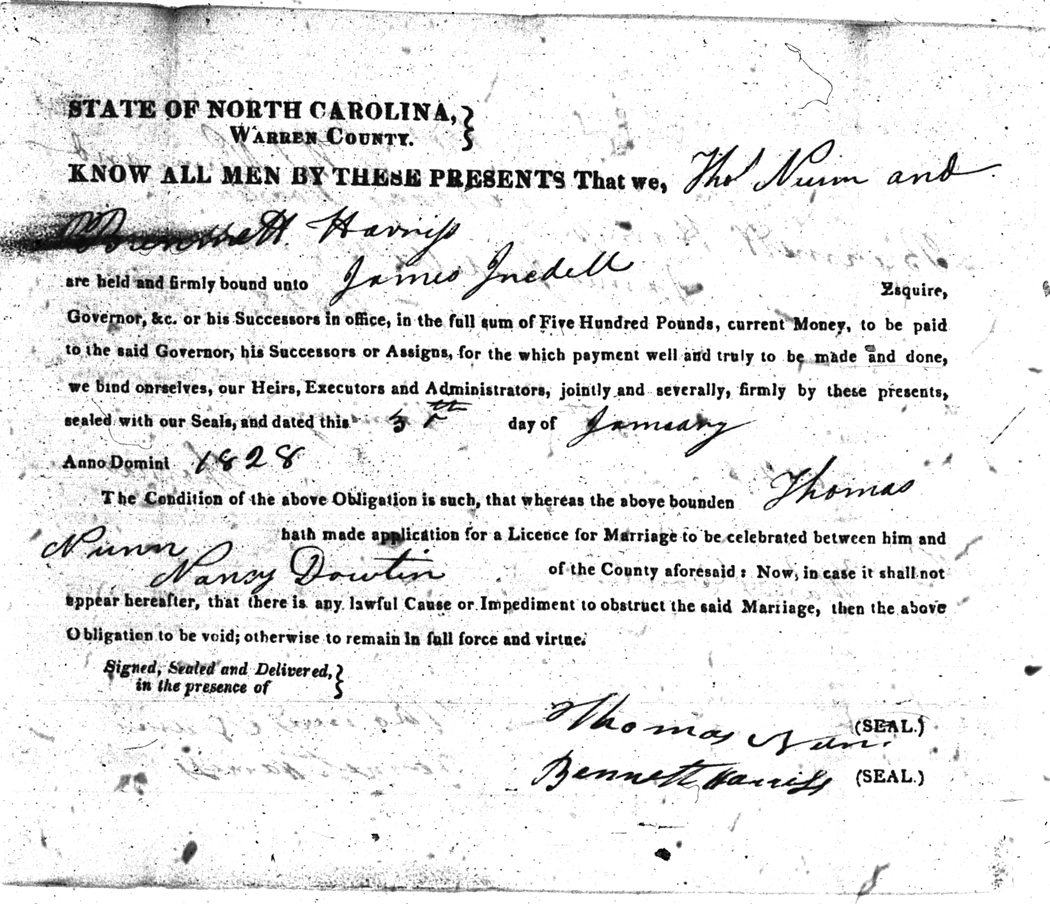 STATE OF NORTH CAROLINA,
WARREN COUNTY.
KNOW ALL MEN BY THESE PRESENTS That we, Thos Nunn and
Bennett Harriss
are held and firmly bound unto James Iredell Esquire,
Governor, &c. or his Successors in office, in the full sum of Five Hundred Pounds, current Money, to be paid
to the said Governor, his Successors or Assigns, for the which payment well and truly to be made and done,
we bind ourselves, our Heirs, Executors and Administrators, jointly and severally, firmly by these presents,
sealed with our Seals, and dated this day of January
Anno Domini 1828
The Condition of the above Obligation is such, that whereas the above bounden Thomas
Nunn hath made application for a Licence for Marriage to be celebrated between him and
Nancy Dowtin of the County aforesaid: Now, in case it shall not
appear hereafter, that there is any lawful Cause or Impediment to obstruct the said Marriage, then the above
Obligation to be void; otherwise to remain in full force and virtue.
Signed, Sealed and Delivered,
in the presence of
Thomas Nunn (SEAL.)
Bennett Harriss (SEAL.)